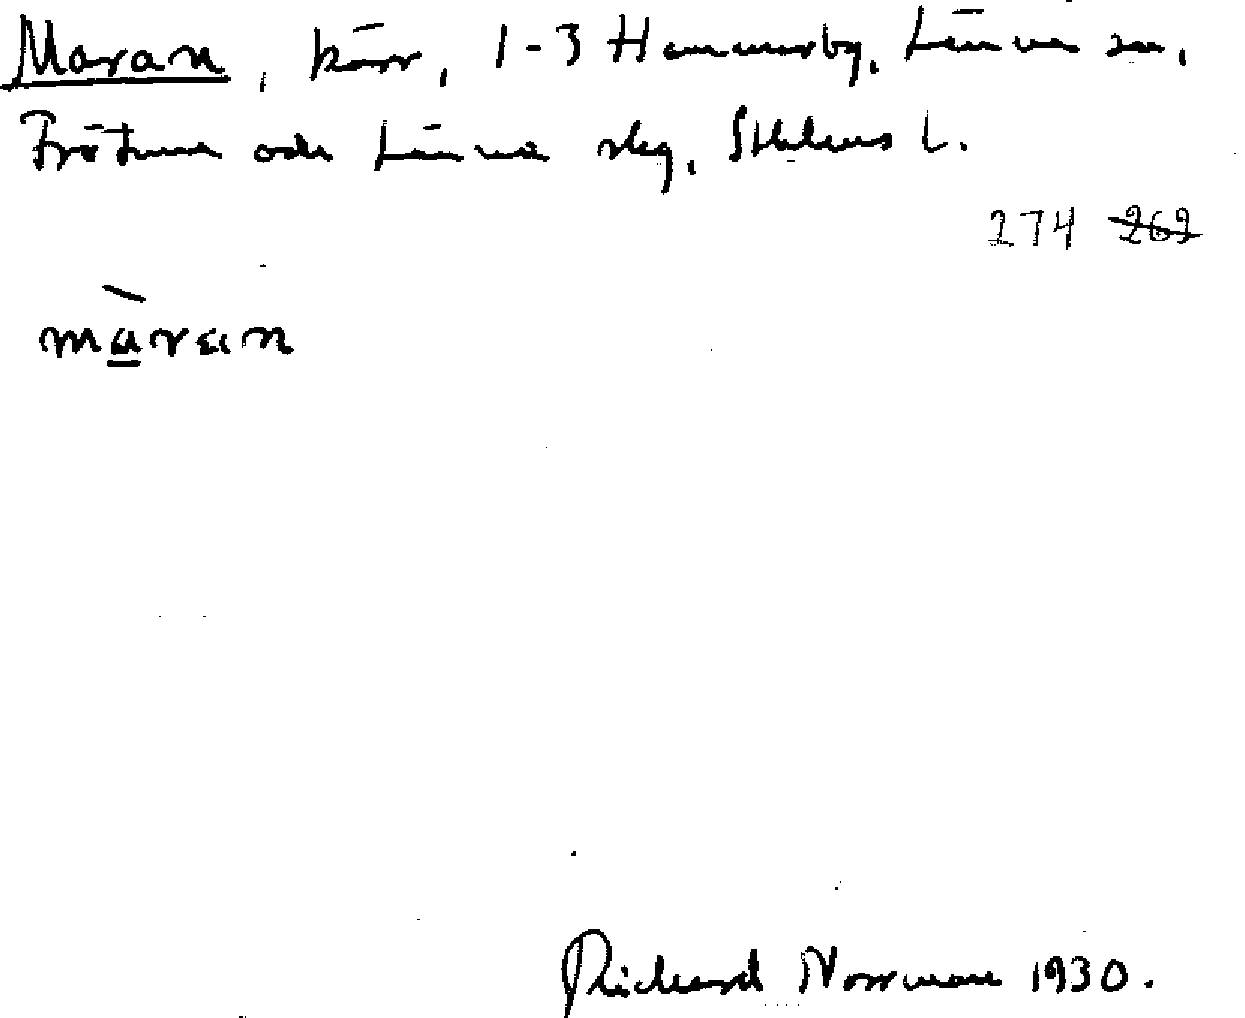 Maran, kärr, 1-3 Hammarby, Länna sn,
Frötuna och Länna skg, Sthlms l.
274 262
màran
Richard Norrman 1930.